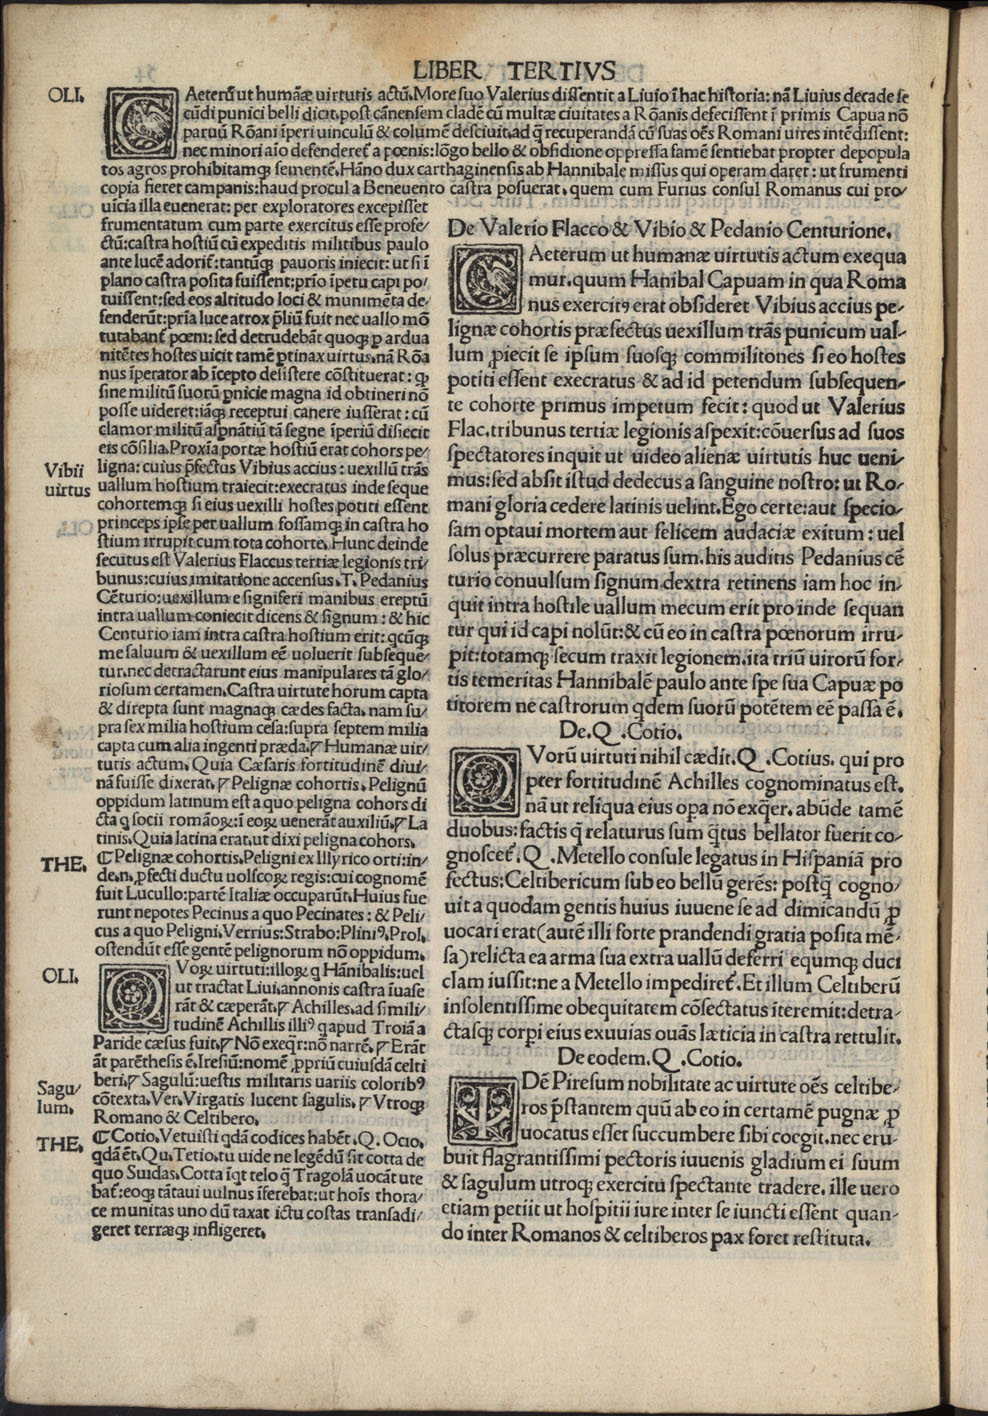 LIBER TERTIVS
OLI.
CAeterū ut humāæ uirtutis actū. More suo Valerius dissentit a Liuio ī hac historia: nā Liuius decade se
cūdi punici belli dicit, post cānensem cladē cū multæ ciuitates a Rōanis defecissent ī primis Capua nō
paruū Rōani īperi uinculū & columē desciuit, ad q̄ recuperandā cū suas oēs Romani uires intēdissent:
nec minori aīo defenderet̃ a pœnis: lōgo bello & obsidione oppressa famē sentiebat propter depopula
tos agros prohibitamq; sementē, Hāno dux carthaginensis ab Hannibale missus qui operam daret: ut frumenti
copia fieret campanis: haud procul a Beneuento castra posuerat, quem cum Furius consul Romanus cui pro/
uīcia illa euenerat: per exploratores excepisset
frumentatum cum parte exercitus esse profe/
ctū: castra hostiū cū expeditis militibus paulo
ante lucē adorit̃: tantūq; pauoris iniecit: ut si ī
plano castra posita fuissent: prīo īpetu capi po/
tuissent: sed eos altitudo loci & munimēta de/
fenderūt: prīa luce atrox p̄liū fuit nec uallo mō
tutabant̃ pœni: sed detrudebāt quoq; ꝑ ardua
nitētes hostes uicit tamē ptinax uirtus, nā Rōa
nus īperator ab īcepto desistere cōstituerat: qꝫ
sine militū suorū pnicie magna id obtineri nō
posse uideret: iāq; receptui canere iusserat: cū
clamor militū aspnātiū tā segne īperiū disiecit
eis cōsilia. Proxīa portæ hostiū erat cohors pe/
ligna: cuius p̄fectus Vibius accius: uexillū trās
Vibii
uirtus
uallum hostium traiecit: execratus inde seque
cohortemq; si eius uexilli hostes potiti essent
princeps ipse per uallum fossamq; in castra ho
stium irrupit cum tota cohorte. Hunc deinde
secutus est Valerius Flaccus tertiæ legionis tri/
bunus: cuius imitatione accensus. T. Pedanius
Cēturio: uexillum e signiferi manibus ereptū
intra uallum coniecit dicens & signum: & hic
Centurio iam intra castra hostium erit: qcūq;
me saluum & uexillum eē uoluerit subseque/
tur. nec detractarunt eius manipulares tā glo/
riosum certamen. Castra uirtute horum capta
& direpta sunt magnaq; cædes facta. nam su/
pra sex milia hostium cesa: supra septem milia
capta cum alia ingenti præda. ¶ Humanæ uir/
tutis actum. Quia Cæsaris fortitudinē diui/
nā fuisse dixerat. ¶ Pelignæ cohortis. Pelignū
oppidum latinum est a quo peligna cohors di
cta q socii romāoꝝ: ī eoꝝ uenerāt auxiliū. ¶ La
tinis. Quia latina erat. ut dixi peligna cohors.
THE.
¶ Pelignæ cohortis. Peligni ex Illyrico orti: in/
de. n. ꝓfecti ductu uolscoꝝ regis: cui cognomē
fuit Lucullo: partē Italiæ occuparūt. Huius fue
runt nepotes Pecinus a quo Pecinates: & Peli/
cus a quo Peligni. Verrius: Strabo: Pliniꝰ. Prol.
ostendūt esse gentē pelignorum nō oppidum.
OLI.
QVoꝝ uirtuti: illoꝝ q Hānibalis: uel
ut tractat Liui, annonis castra īuase
rāt & cæperāt. ¶ Achilles. ad simili/
tudinē Achillis illiꝰ qapud Troiā a
Paride cæsus fuit. ¶ Nō exeqr: nō narrē. ¶ Erāt
āt parēthesis ē. Iresiū: nomē ꝓpriū cuiusdā celti
beri. ¶ Sagulū: uestis militaris uariis coloribꝰ
Sagu/
lum.
cōtexta. Ver. Virgatis lucent sagulis. ¶ Vtroq;
Romano & Celtibero.
THE.
¶ Cotio. Vetuisti qdā codices habēt. Q. Ocio.
qdā ēt. Qu. Tetio. tu uide ne legēdū sit cotta de
quo Suidas. Cotta īqt telo q̄ Tragolā uocāt ute
bat̃: eoq; tātaui uulnus īferebat: ut hoīs thora/
ce munitas uno dū taxat ictu costas transadi/
geret terræq; infligeret.
De Valerio Flacco & Vibio & Pedanio Centurione.
CAeterum ut humanæ uirtutis actum exequa
mur. quum Hanibal Capuam in qua Roma
nus exercitꝰ erat obsideret Vibius accius pe/
lignæ cohortis præfectus uexillum trās punicum ual/
lum ꝓiecit se ipsum suosq; commilitones si eo hostes
potiti essent execratus & ad id petendum subsequen/
te cohorte primus impetum fecit: quod ut Valerius
Flac. tribunus tertiæ legionis aspexit: cōuersus ad suos
spectatores inquit ut uideo alienæ uirtutis huc ueni/
mus: sed absit istud dedecus a sanguine nostro: ut Ro/
mani gloria cedere latinis uelint. Ego certe: aut specio/
sam optaui mortem aut felicem audaciæ exitum: uel
solus præcurrere paratus sum. his auditis Pedanius cē
turio conuulsum signum dextra retinens iam hoc in/
quit intra hostile uallum mecum erit pro inde sequan
tur qui id capi nolūt: & cū eo in castra pœnorum irru/
pit: totamq; secum traxit legionem. ita triū uirorū for/
tis temeritas Hannibalē paulo ante spe sua Capuæ po
titorem ne castrorum qdem suorū potētem eē passa ē.
De. Q. Cotio.
QVorū uirtuti nihil cædit. Q. Cotius. qui pro
pter fortitudinē Achilles cognominatus est.
nā ut reliqua eius opa nō exq̄r. abūde tamē
duobus: factis q̄ relaturus sum q̄tus bellator fuerit co/
gnoscet̃. Q. Metello consule legatus in Hispaniā pro
fectus: Celtibericum sub eo bellū gerēs: postq̄ cogno/
uit a quodam gentis huius iuuene se ad dimicandū ꝓ
uocari erat (autē illi forte prandendi gratia posita mē/
sa) relicta ea arma sua extra uallū deferri equmq; duci
clam iussit: ne a Metello impediret̃. Et illum Celtiberū
insolentissime obequitatem cōsectatus īteremit: detra/
ctasq; corpi eius exuuias ouās læticia in castra rettulit.
De eodem. Q. Cotio.
IDē Piresum nobilitate ac uirtute oēs celtibe/
ros p̄stantem quū ab eo in certamē pugnæ ꝓ
uocatus esset succumbere sibi coegit. nec eru/
buit flagrantissimi pectoris iuuenis gladium ei suum
& sagulum utroq; exercitu spectante tradere. ille uero
etiam petiit ut hospitii iure inter se iuncti essent quan/
do inter Romanos & celtiberos pax foret restituta.